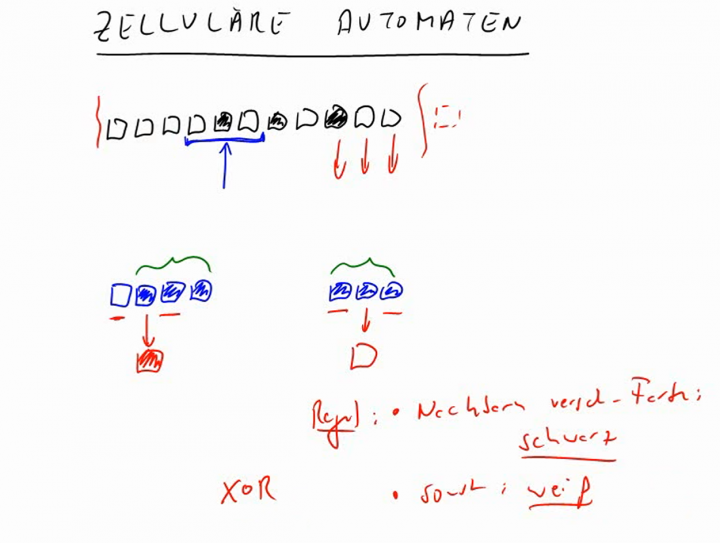 ZELLULÄRE AUTOMATEN
Regel: • Nachbarn versch. Farb:
schwarz
XOR • sonst: weiß